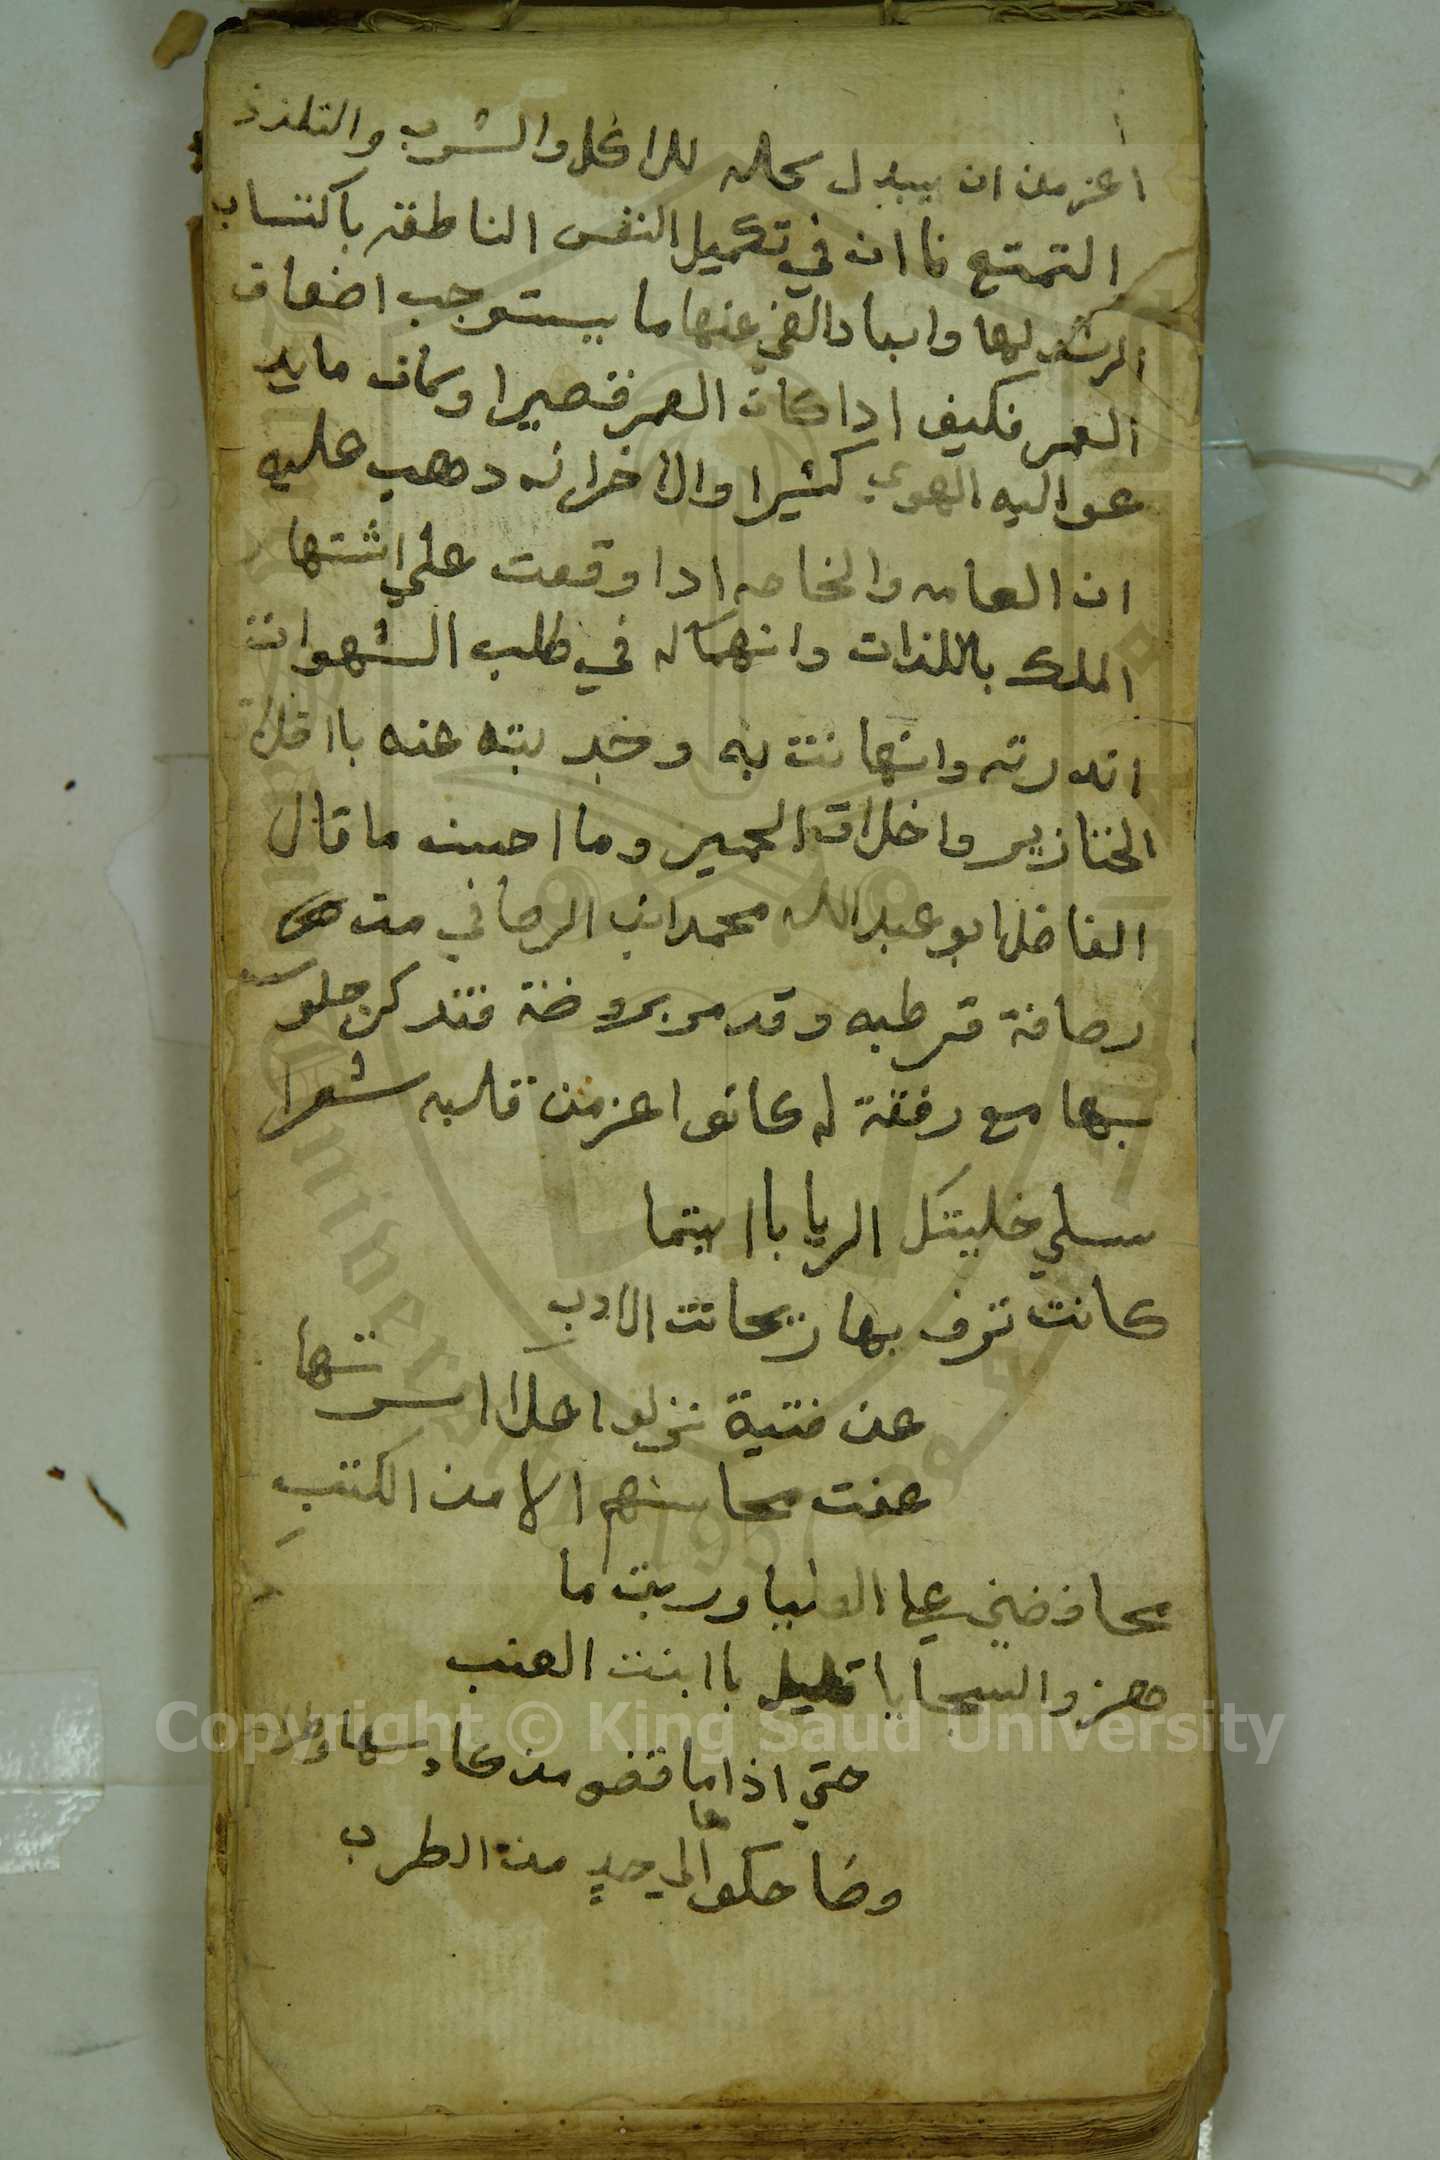 اعز من ان يبدل كله للاكل والشرب والتلذذ
التمتع فاان في تكميل النفس الناطقه باكتساب
الرشد لها وابعاد الغي عنها ما يستوجب اضعاف
العمر فكيف اداكان العمر قصيرا وكان مايد
عواليه الهوي كثيرا والاخرانه دهب عليه
ان العامه والخاصه ادا وقعت علي اشتهار
الملك باللذات وانهماكه في طلب الشهوات
اندرته وانتهانت به وخبر بته عنه بااخلاق
الخنازير واخلاق الحمير وما احسن ما قال
الفاضل ابو عبدالله محمد ابن الرصافي من
رصافة قرطبه وقد مر بروضة فتدكر جلوسه
بها مع رفقة له كانوا اعز من قلبه شعرا
سلي خليتكل الريا باايتما
كانت ترف بها ريحانت الادب
عن فتية نزلوا اعلاا سرتها
عفت محاسنهم الا من الكتب
محافضين علي العليا وربت ما
هزوا السجايا قليل باابنت العنب
حتي اذا ما قضو من كاءسها وطرا
وضاحكوها الي حد من الطرب
Copyright © King Saud University